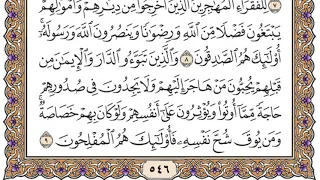 ٧ لِلْفُقَرَاءِ الْمُهَاجِرِينَ الَّذِينَ أُخْرِجُوا مِن دِيَارِهِمْ وَأَمْوَالِهِمْ
يَبْتَغُونَ فَضْلًا مِّنَ اللَّهِ وَرِضْوَانًا وَيَنصُرُونَ اللَّهَ وَرَسُولَهُ
أُولَٰئِكَ هُمُ الصَّادِقُونَ ٨ وَالَّذِينَ تَبَوَّءُو الدَّارَ وَالْإِيمَانَ مِن
قَبْلِهِمْ يُحِبُّونَ مَنْ هَاجَرَ إِلَيْهِمْ وَلَا يَجِدُونَ فِي صُدُورِهِمْ
حَاجَةً مِّمَّا أُوتُوا وَيُؤْثِرُونَ عَلَىٰ أَنفُسِهِمْ وَلَوْ كَانَ بِهِمْ خَصَاصَةٌ
وَمَن يُوقَ شُحَّ نَفْسِهِ فَأُولَٰئِكَ هُمُ الْمُفْلِحُونَ ٩
٥٤٦